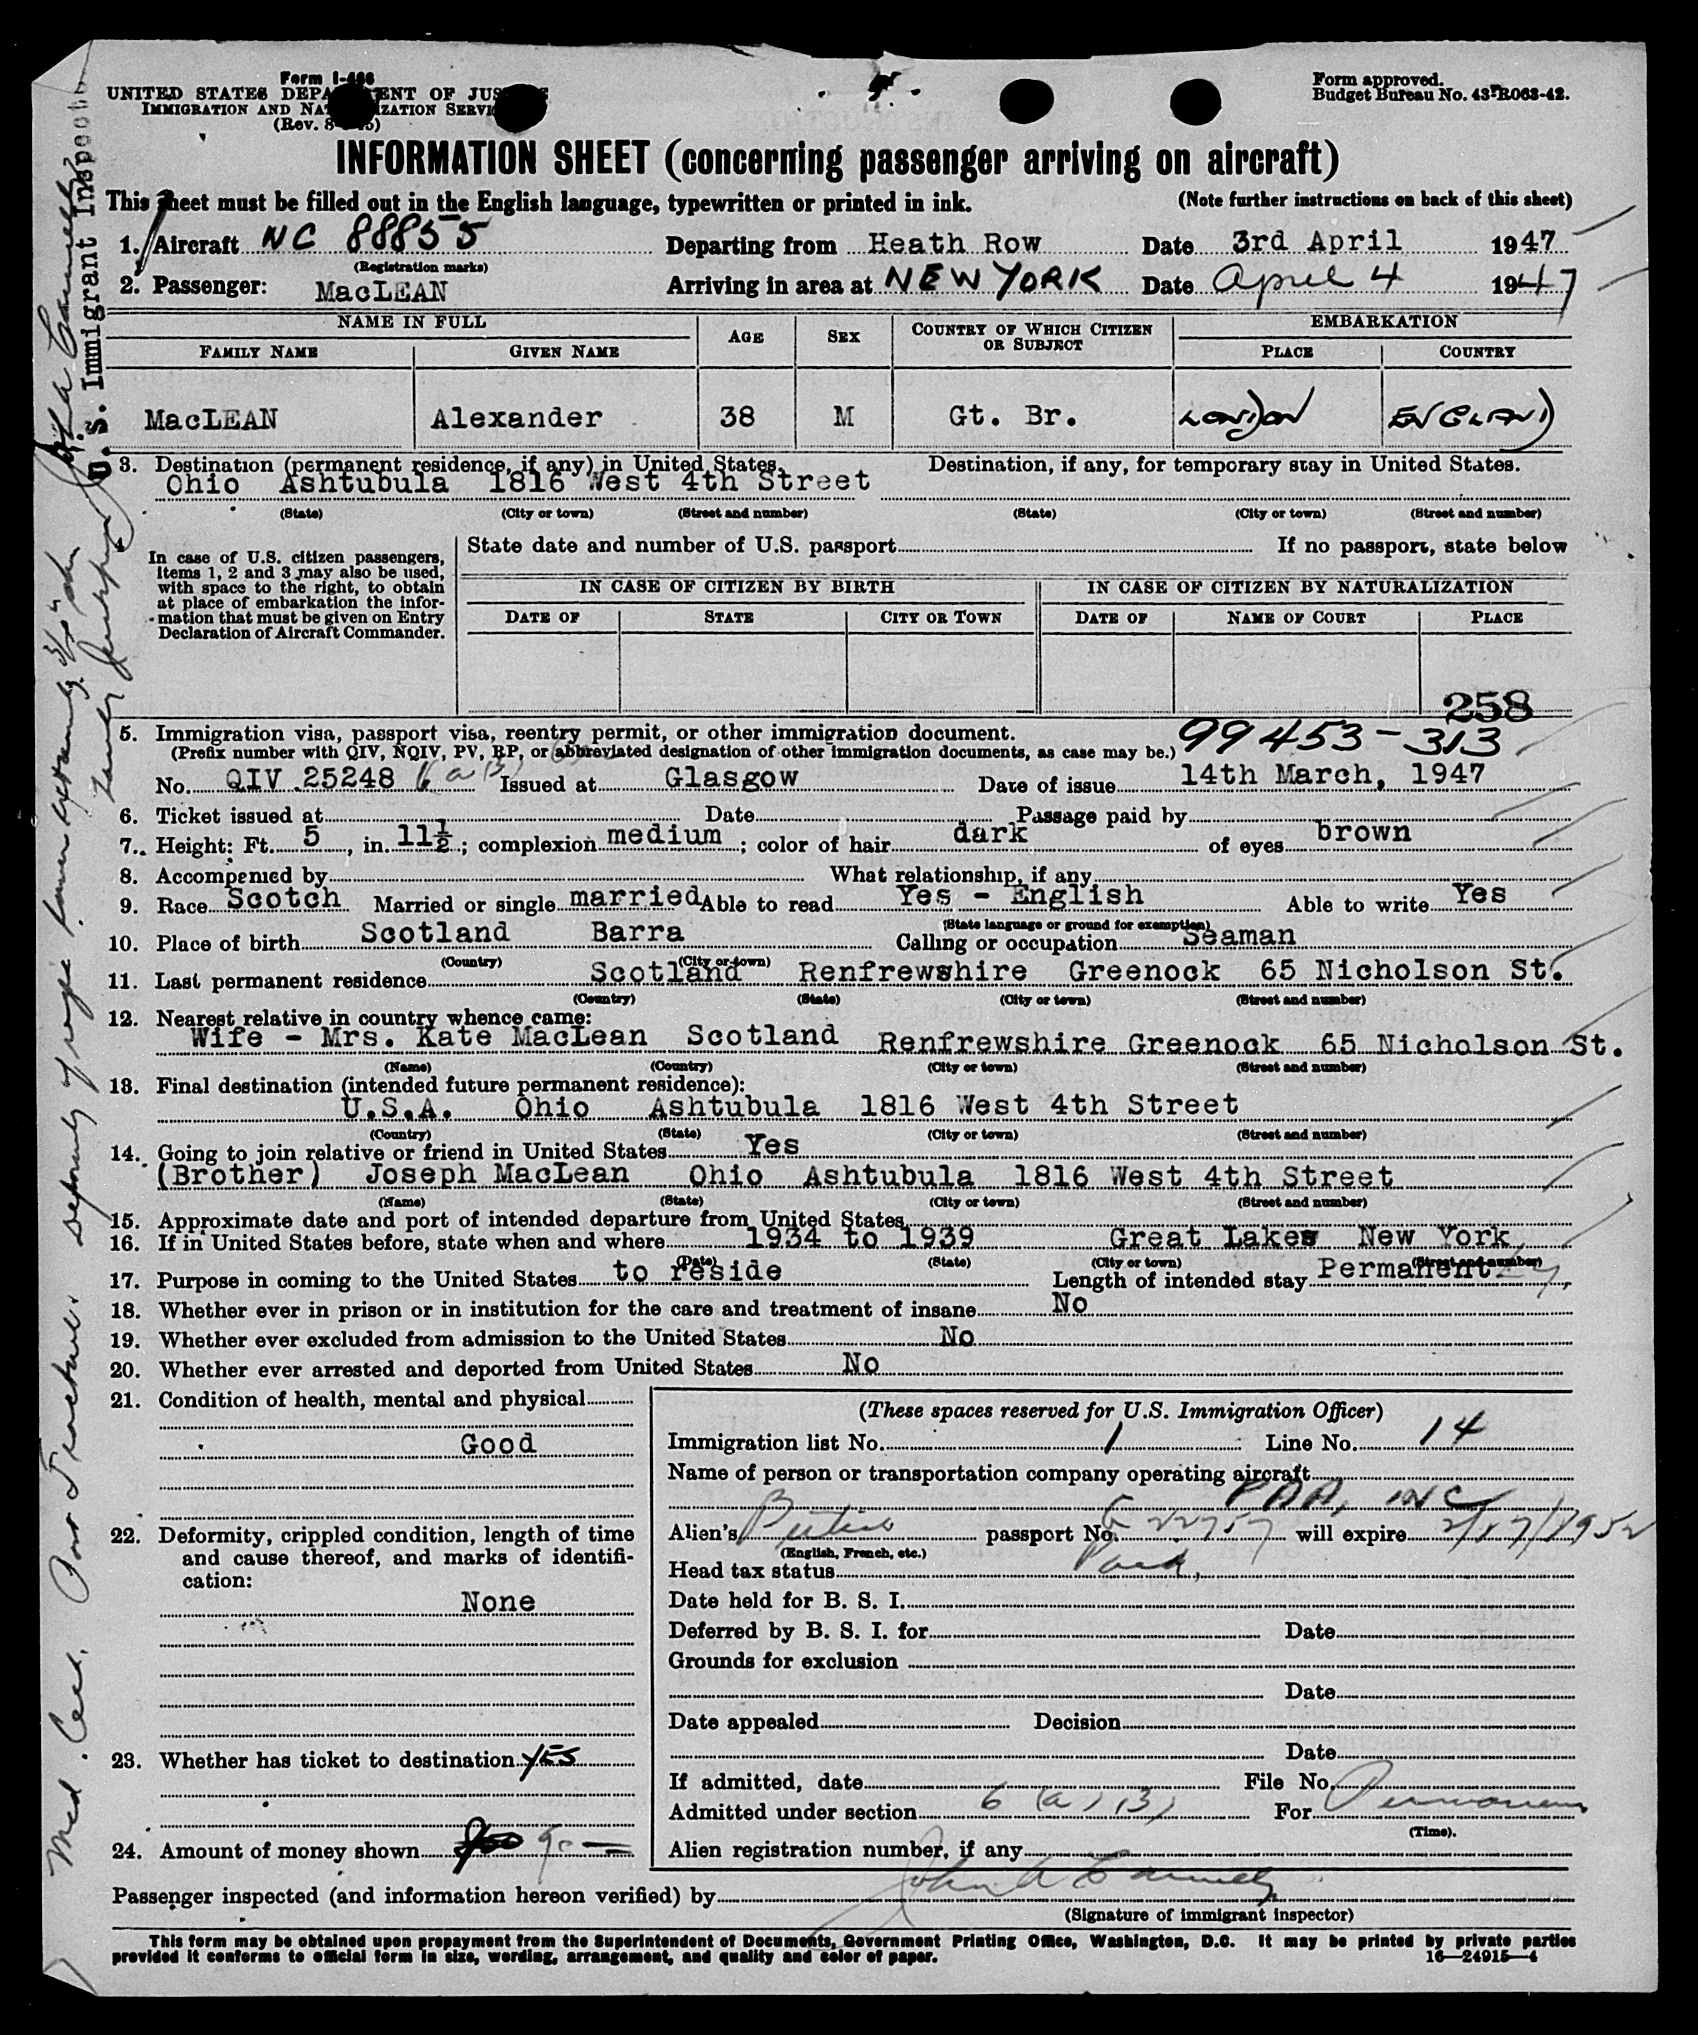 Form I-466
UNITED STATES DEPARTMENT OF JUSTICE
IMMIGRATION AND NATURALIZATION SERVICE
Form approved.
Budget Bureau No. 43-R063-42.
INFORMATION SHEET (concerning passenger arriving on aircraft)
This sheet must be filled out in the English language, typewritten or printed in ink. (Note further instructions on back of this sheet)
1. Aircraft NC 88855 Departing from Heath Row Date 3rd April 1947
(Registration marks)
2. Passenger: MacLEAN Arriving in area at NEW YORK Date April 4 1947
NAME IN FULL AGE SEX COUNTRY OF WHICH CITIZEN OR SUBJECT EMBARKATION
FAMILY NAME GIVEN NAME PLACE COUNTRY
MacLEAN Alexander 38 M Gt. Br. LONDON ENGLAND
3. Destination (permanent residence, if any) in United States. Destination, if any, for temporary stay in United States.
Ohio Ashtubula 1816 West 4th Street
(State) (City or town) (Street and number) (State) (City or town) (Street and number)
In case of U.S. citizen passengers,
items 1, 2 and 3 may also be used,
with space to the right, to obtain
at place of embarkation the infor-
mation that must be given on Entry
Declaration of Aircraft Commander.
State date and number of U.S. passport If no passport, state below
IN CASE OF CITIZEN BY BIRTH IN CASE OF CITIZEN BY NATURALIZATION
DATE OF STATE CITY OR TOWN DATE OF NAME OF COURT PLACE
258
5. Immigration visa, passport visa, reentry permit, or other immigration document. 99453-313
(Prefix number with QIV, NQIV, PV, RP, or abbreviated designation of other immigration documents, as case may be.)
No. QIV 25248 6(a)(3) Issued at Glasgow Date of issue 14th March, 1947
6. Ticket issued at Date Passage paid by
7. Height: Ft. 5, in. 11½; complexion medium; color of hair dark of eyes brown
8. Accompenied by What relationship, if any
9. Race Scotch Married or single married Able to read Yes - English Able to write Yes
(State language or ground for exemption)
10. Place of birth Scotland Barra Calling or occupation Seaman
(Country) (City or town)
11. Last permanent residence Scotland Renfrewshire Greenock 65 Nicholson St.
(Country) (State) (City or town) (Street and number)
12. Nearest relative in country whence came:
Wife - Mrs. Kate MacLean Scotland Renfrewshire Greenock 65 Nicholson St.
(Name) (Country) (City or town) (Street and number)
13. Final destination (intended future permanent residence):
U.S.A. Ohio Ashtubula 1816 West 4th Street
(Country) (State) (City or town) (Street and number)
14. Going to join relative or friend in United States Yes
(Brother) Joseph MacLean Ohio Ashtubula 1816 West 4th Street
(Name) (State) (City or town) (Street and number)
15. Approximate date and port of intended departure from United States
16. If in United States before, state when and where 1934 to 1939 Great Lakes New York
(Date) (State) (City or town) (Street and number)
17. Purpose in coming to the United States to reside Length of intended stay Permanent
18. Whether ever in prison or in institution for the care and treatment of insane No
19. Whether ever excluded from admission to the United States No
20. Whether ever arrested and deported from United States No
21. Condition of health, mental and physical
Good
22. Deformity, crippled condition, length of time
and cause thereof, and marks of identifi-
cation:
None
23. Whether has ticket to destination YES
24. Amount of money shown 90
(These spaces reserved for U.S. Immigration Officer)
Immigration list No. 1 Line No. 14
Name of person or transportation company operating aircraft
PAA, INC
Alien's British passport No. C 22757 will expire 2/17/1952
(English, French, etc.)
Head tax status Paid,
Date held for B. S. I.
Deferred by B. S. I. for Date
Grounds for exclusion
Date
Date appealed Decision
Date
If admitted, date File No.
Admitted under section 6 (a) (3) For Permanent
(Time).
Alien registration number, if any
Passenger inspected (and information hereon verified) by John A
(Signature of immigrant inspector)
This form may be obtained upon prepayment from the Superintendent of Documents, Government Printing Office, Washington, D.C. It may be printed by private parties
provided it conforms to official form in size, wording, arrangement, and quality and color of paper. 16—24915-4
U.S. Immigrant Inspector